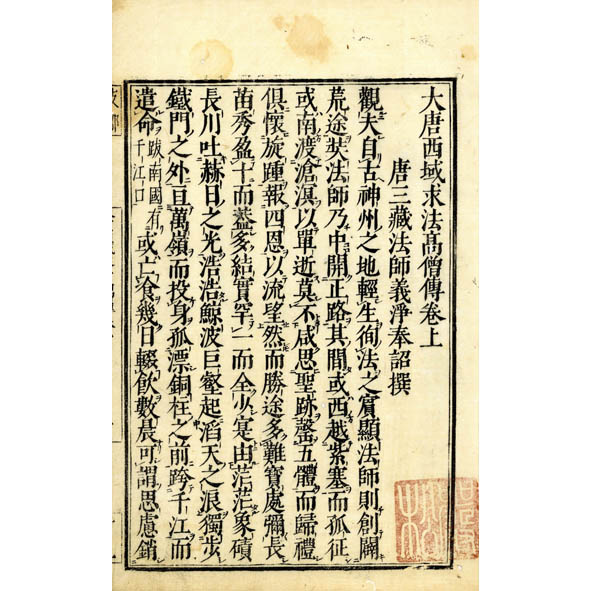 大唐西域求法高僧傳卷上
唐三藏法師義淨奉詔撰
觀夫自古神州之地輕生徇法之賓顯法師則創闢
荒途奘法師乃中開正路其間或西越紫塞而孤征
或南渡滄溟以單逝莫不咸思聖跡罄五體而歸禮
俱懷旋踵報四恩以流望然而勝途多難寶處彌長
苗秀盈十而蓋多結實罕一而全少寔由茫茫象磧
長川吐赫日之光浩浩鯨波巨壑起滔天之浪獨步
鐵門之外亘萬嶺而投身孤漂銅柱之前跨千江而
遣命跋南國有千江口或亡飡幾日輟飲數晨可謂思慮銷